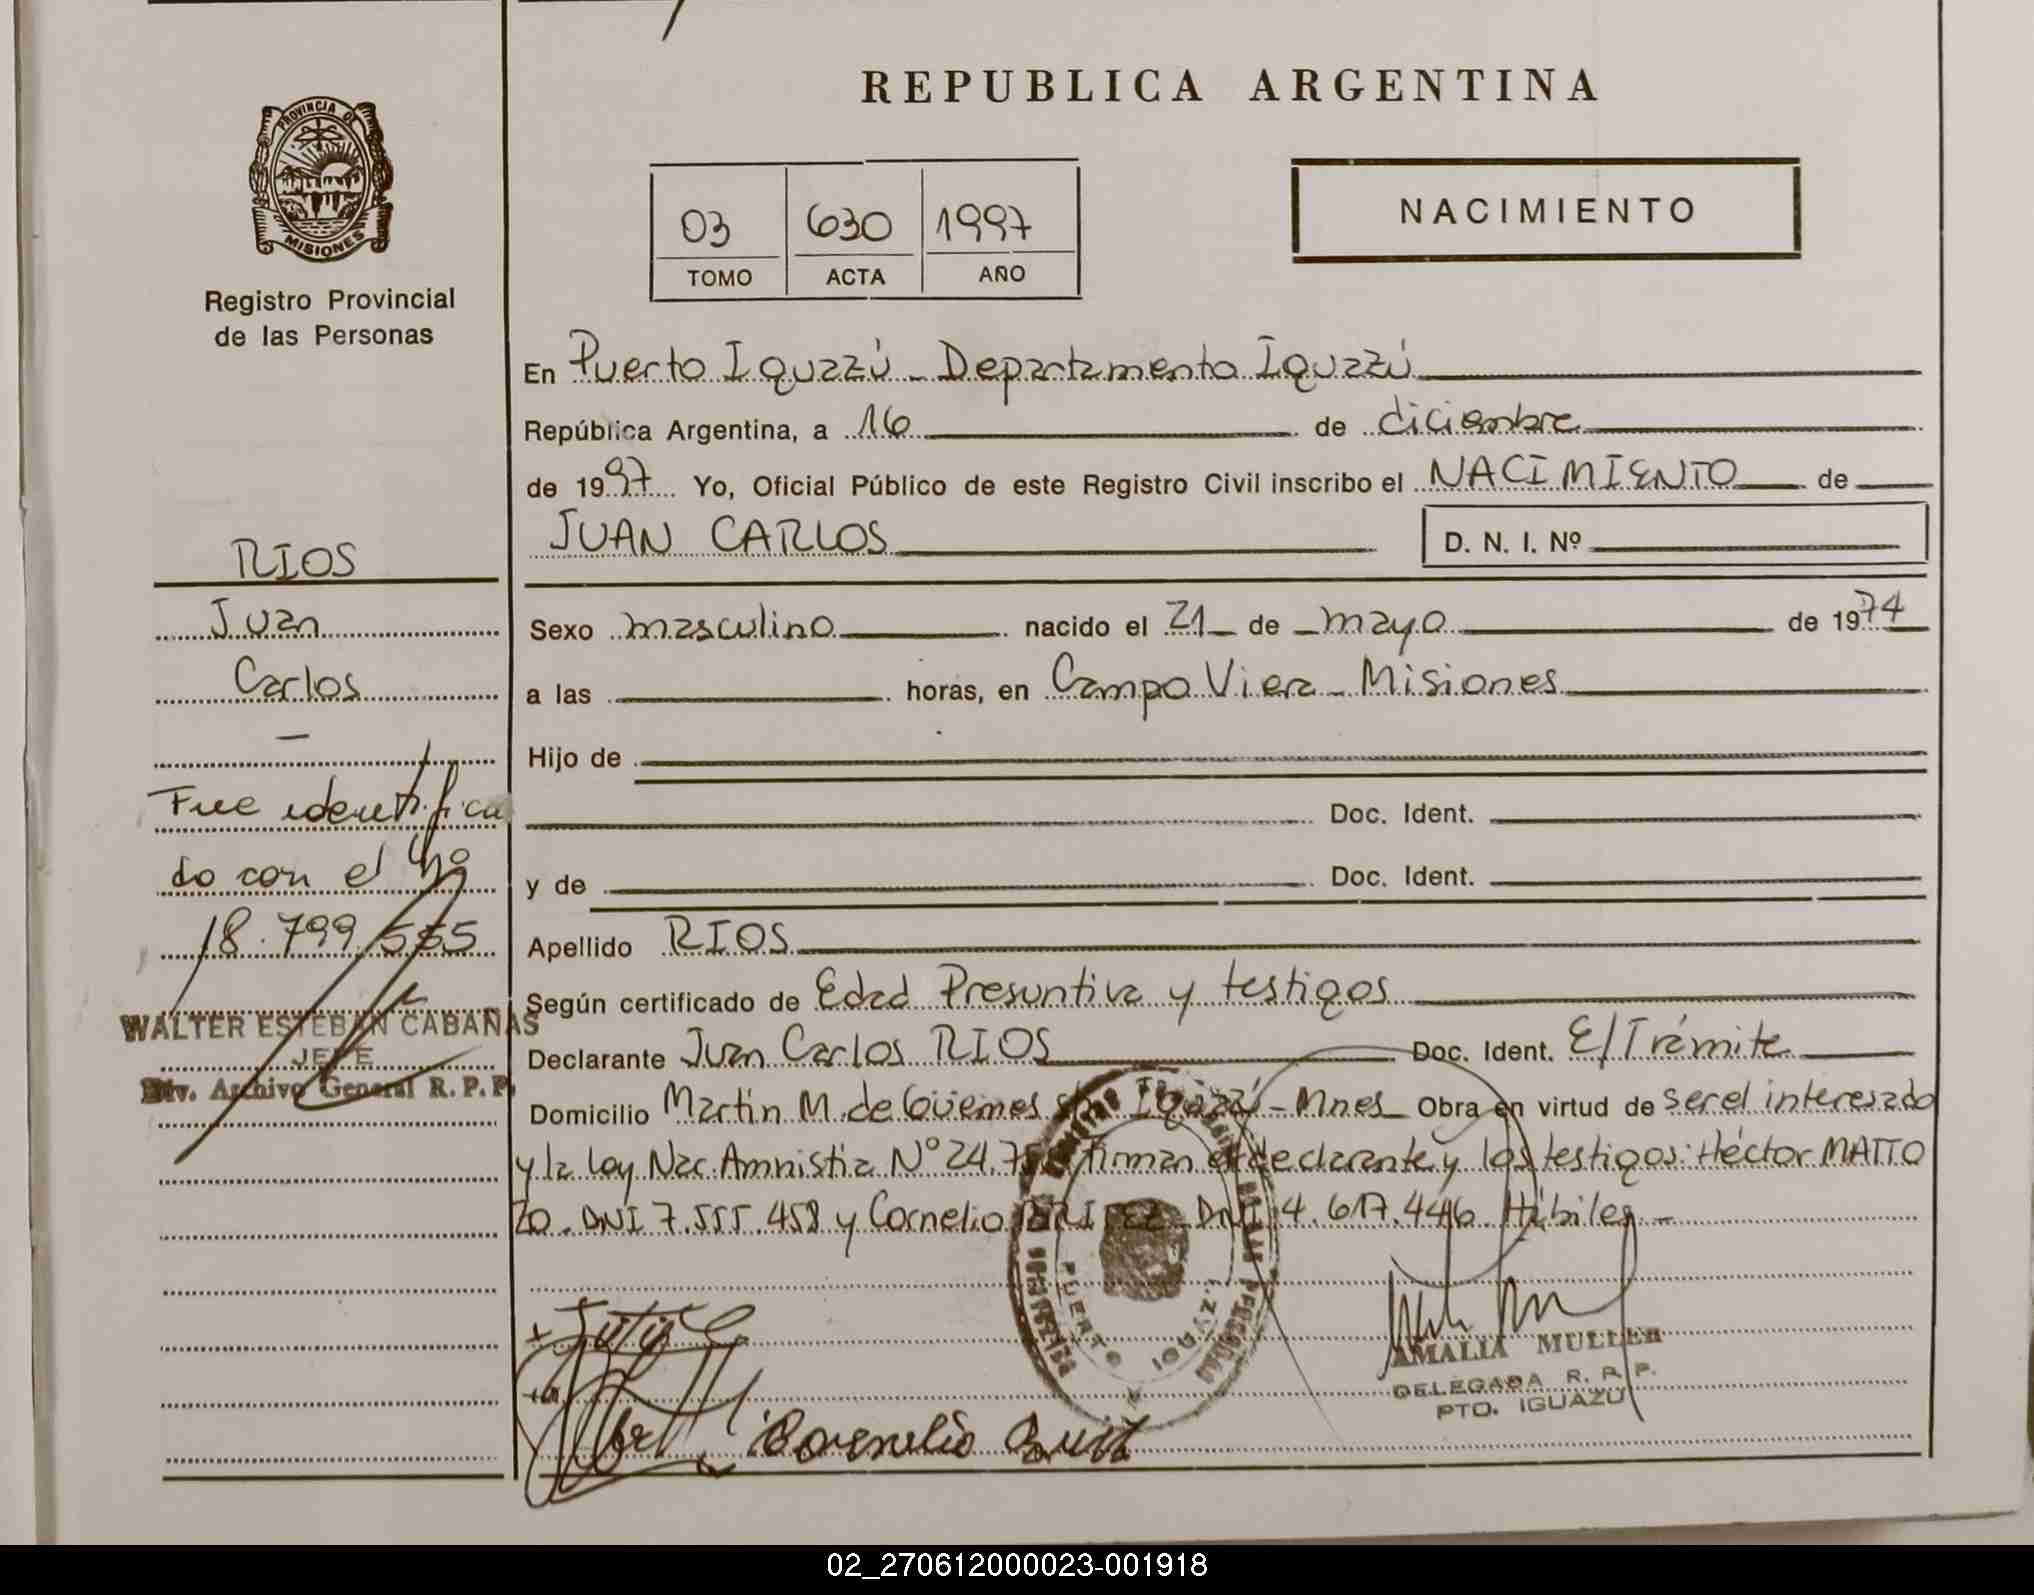 REPUBLICA ARGENTINA
PROVINCIA DE
MISIONES
Registro Provincial
de las Personas
03 630 1997
TOMO ACTA AÑO
NACIMIENTO
En Puerto Iguazú - Departamento Iguazú
República Argentina, a 16 de diciembre
de 1997 Yo, Oficial Público de este Registro Civil inscribo el NACIMIENTO de
JUAN CARLOS D. N. I. Nº
RIOS
Juan
Carlos
Sexo masculino nacido el 21 de mayo de 1974
a las horas, en Campo Viera - Misiones
Hijo de
Doc. Ident.
y de Doc. Ident.
Fue identifica
do con el Nº
18.799.555
WALTER ESTEBAN CABAÑAS
JEFE
Div. Archivo General R.P.P.
Apellido RIOS
Según certificado de Edad Presuntiva y testigos
Declarante Juan Carlos RIOS Doc. Ident. E/Trámite
Domicilio Martín M. de Güemes Iguazú - Mnes Obra en virtud de ser el interesado
y la Ley Nac. Amnistia Nº 24.755 firman el declarante y los testigos: Héctor MATTO
ZO. DNI 7.555.458 y Cornelio DNI 4.617.446 Hábiles -
PUERTO IGUAZU
Cornelio
AMALIA MULLER
DELEGADA R. P. P.
PTO. IGUAZU
02_270612000023-001918